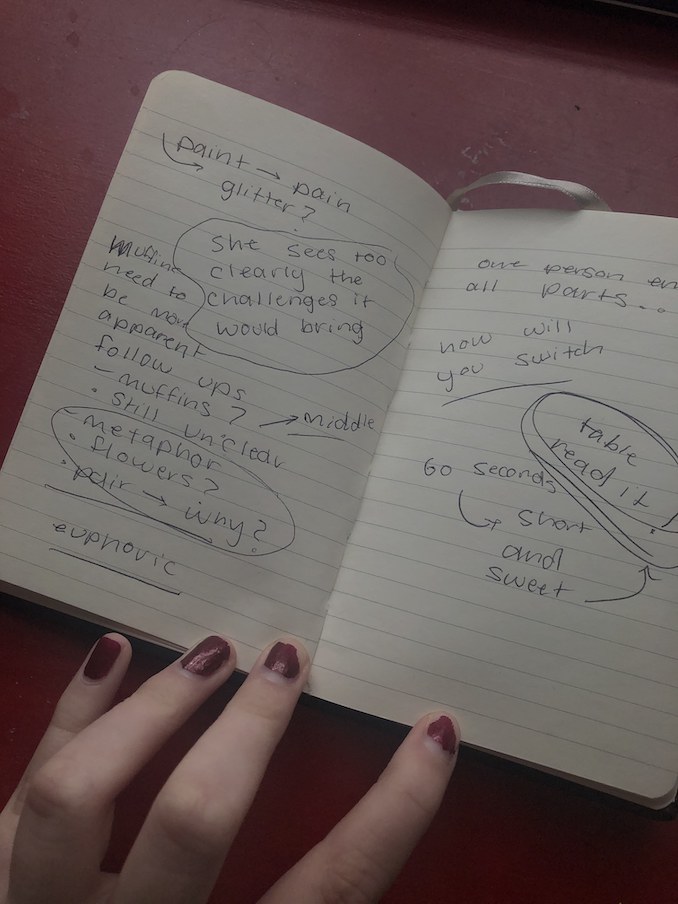 paint → pain
glitter?
she sees too
clearly the
challenges it
would bring
Muffins
need to
be more
apparent
follow ups
- muffins? → middle
• still unclear
- metaphor
• flowers?
• pair → why?
euphoric
one person en
all parts...
how will
you switch
table
read it!
60 seconds
short
and
sweet